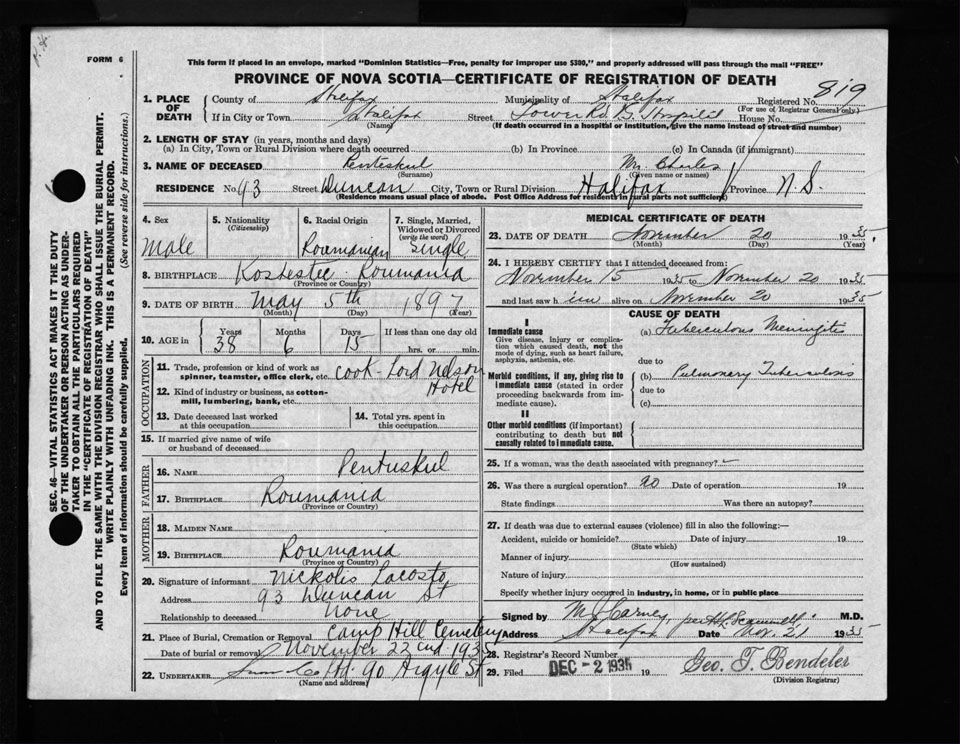 FORM 6
This form if placed in an envelope, marked "Dominion Statistics—Free, penalty for improper use $300," and properly addressed will pass through the mail "FREE"
PROVINCE OF NOVA SCOTIA—CERTIFICATE OF REGISTRATION OF DEATH
SEC. 46—VITAL STATISTICS ACT MAKES IT THE DUTY
OF THE UNDERTAKER OR PERSON ACTING AS UNDER-
TAKER TO OBTAIN ALL THE PARTICULARS REQUIRED
IN THE "CERTIFICATE OF REGISTRATION OF DEATH"
AND TO FILE THE SAME WITH THE DIVISION REGISTRAR WHO SHALL ISSUE THE BURIAL PERMIT.
WRITE PLAINLY WITH UNFADING INK. THIS IS A PERMANENT RECORD.
Every item of information should be carefully supplied. (See reverse side for instructions.)
1. PLACE OF DEATH County of Halifax Municipality of Halifax Registered No. 819
(For use of Registrar General only)
If in City or Town Halifax Street Tower Rd. Hospital House No.
(Name) (If death occurred in a hospital or institution, give the name instead of street and number)
2. LENGTH OF STAY (in years, months and days)
(a) In City, Town or Rural Division where death occurred (b) In Province (c) In Canada (if immigrant)
3. NAME OF DECEASED Penteskul Mr. Charles
(Surname) (Given name or names)
RESIDENCE No. 93 Street Duncan City, Town or Rural Division Halifax Province N.S.
(Residence means usual place of abode. Post Office Address for residents in rural parts not sufficient)
4. Sex Male
5. Nationality (Citizenship)
6. Racial Origin Roumanian
7. Single, Married, Widowed or Divorced (write the word) Single
8. BIRTHPLACE Roumania
(Province or Country)
9. DATE OF BIRTH May 5th 1897
(Month) (Day) (Year)
10. AGE in Years 38 Months 6 Days 15 If less than one day old hrs. or min.
OCCUPATION
11. Trade, profession or kind of work as spinner, teamster, office clerk, etc. Cook - Lord Nelson Hotel
12. Kind of industry or business, as cotton-mill, lumbering, bank, etc.
13. Date deceased last worked at this occupation
14. Total yrs. spent in this occupation
15. If married give name of wife or husband of deceased
FATHER
16. NAME Pentuskul
17. BIRTHPLACE Roumania
(Province or Country)
MOTHER
18. MAIDEN NAME
19. BIRTHPLACE Roumania
(Province or Country)
20. Signature of informant Nickolis Lacosto
Address 93 Duncan St
Relationship to deceased None
21. Place of Burial, Cremation or Removal Camp Hill Cemetery
Date of burial or removal November 22nd 1935
22. UNDERTAKER Snow Co Ltd. 90 Argyle St
(Name and address)
MEDICAL CERTIFICATE OF DEATH
23. DATE OF DEATH November 20 1935.
(Month) (Day) (Year)
24. I HEREBY CERTIFY that I attended deceased from:
November 15 1935 to November 20 1935
and last saw him alive on November 20 1935
CAUSE OF DEATH
I
Immediate cause
Give disease, injury or complication which caused death, not the mode of dying, such as heart failure, asphyxia, asthenia, etc.
(a) Tuberculous Meningitis
due to
Morbid conditions, if any, giving rise to immediate cause (stated in order proceeding backwards from immediate cause).
(b) Pulmonary Tuberculosis
due to
(c)
II
Other morbid conditions (if important) contributing to death but not causally related to immediate cause.
25. If a woman, was the death associated with pregnancy?
26. Was there a surgical operation? no Date of operation 19
State findings Was there an autopsy?
27. If death was due to external causes (violence) fill in also the following:—
Accident, suicide or homicide? Date of injury 19
(State which)
Manner of injury
(How sustained)
Nature of injury
Specify whether injury occurred in industry, in home, or in public place
Signed by M. J. Carney, per H. Scammell M.D.
Address Halifax Date Nov. 21 1935
28. Registrar's Record Number
29. Filed DEC -2 1935 19 Geo. T. Bendeler
(Division Registrar)